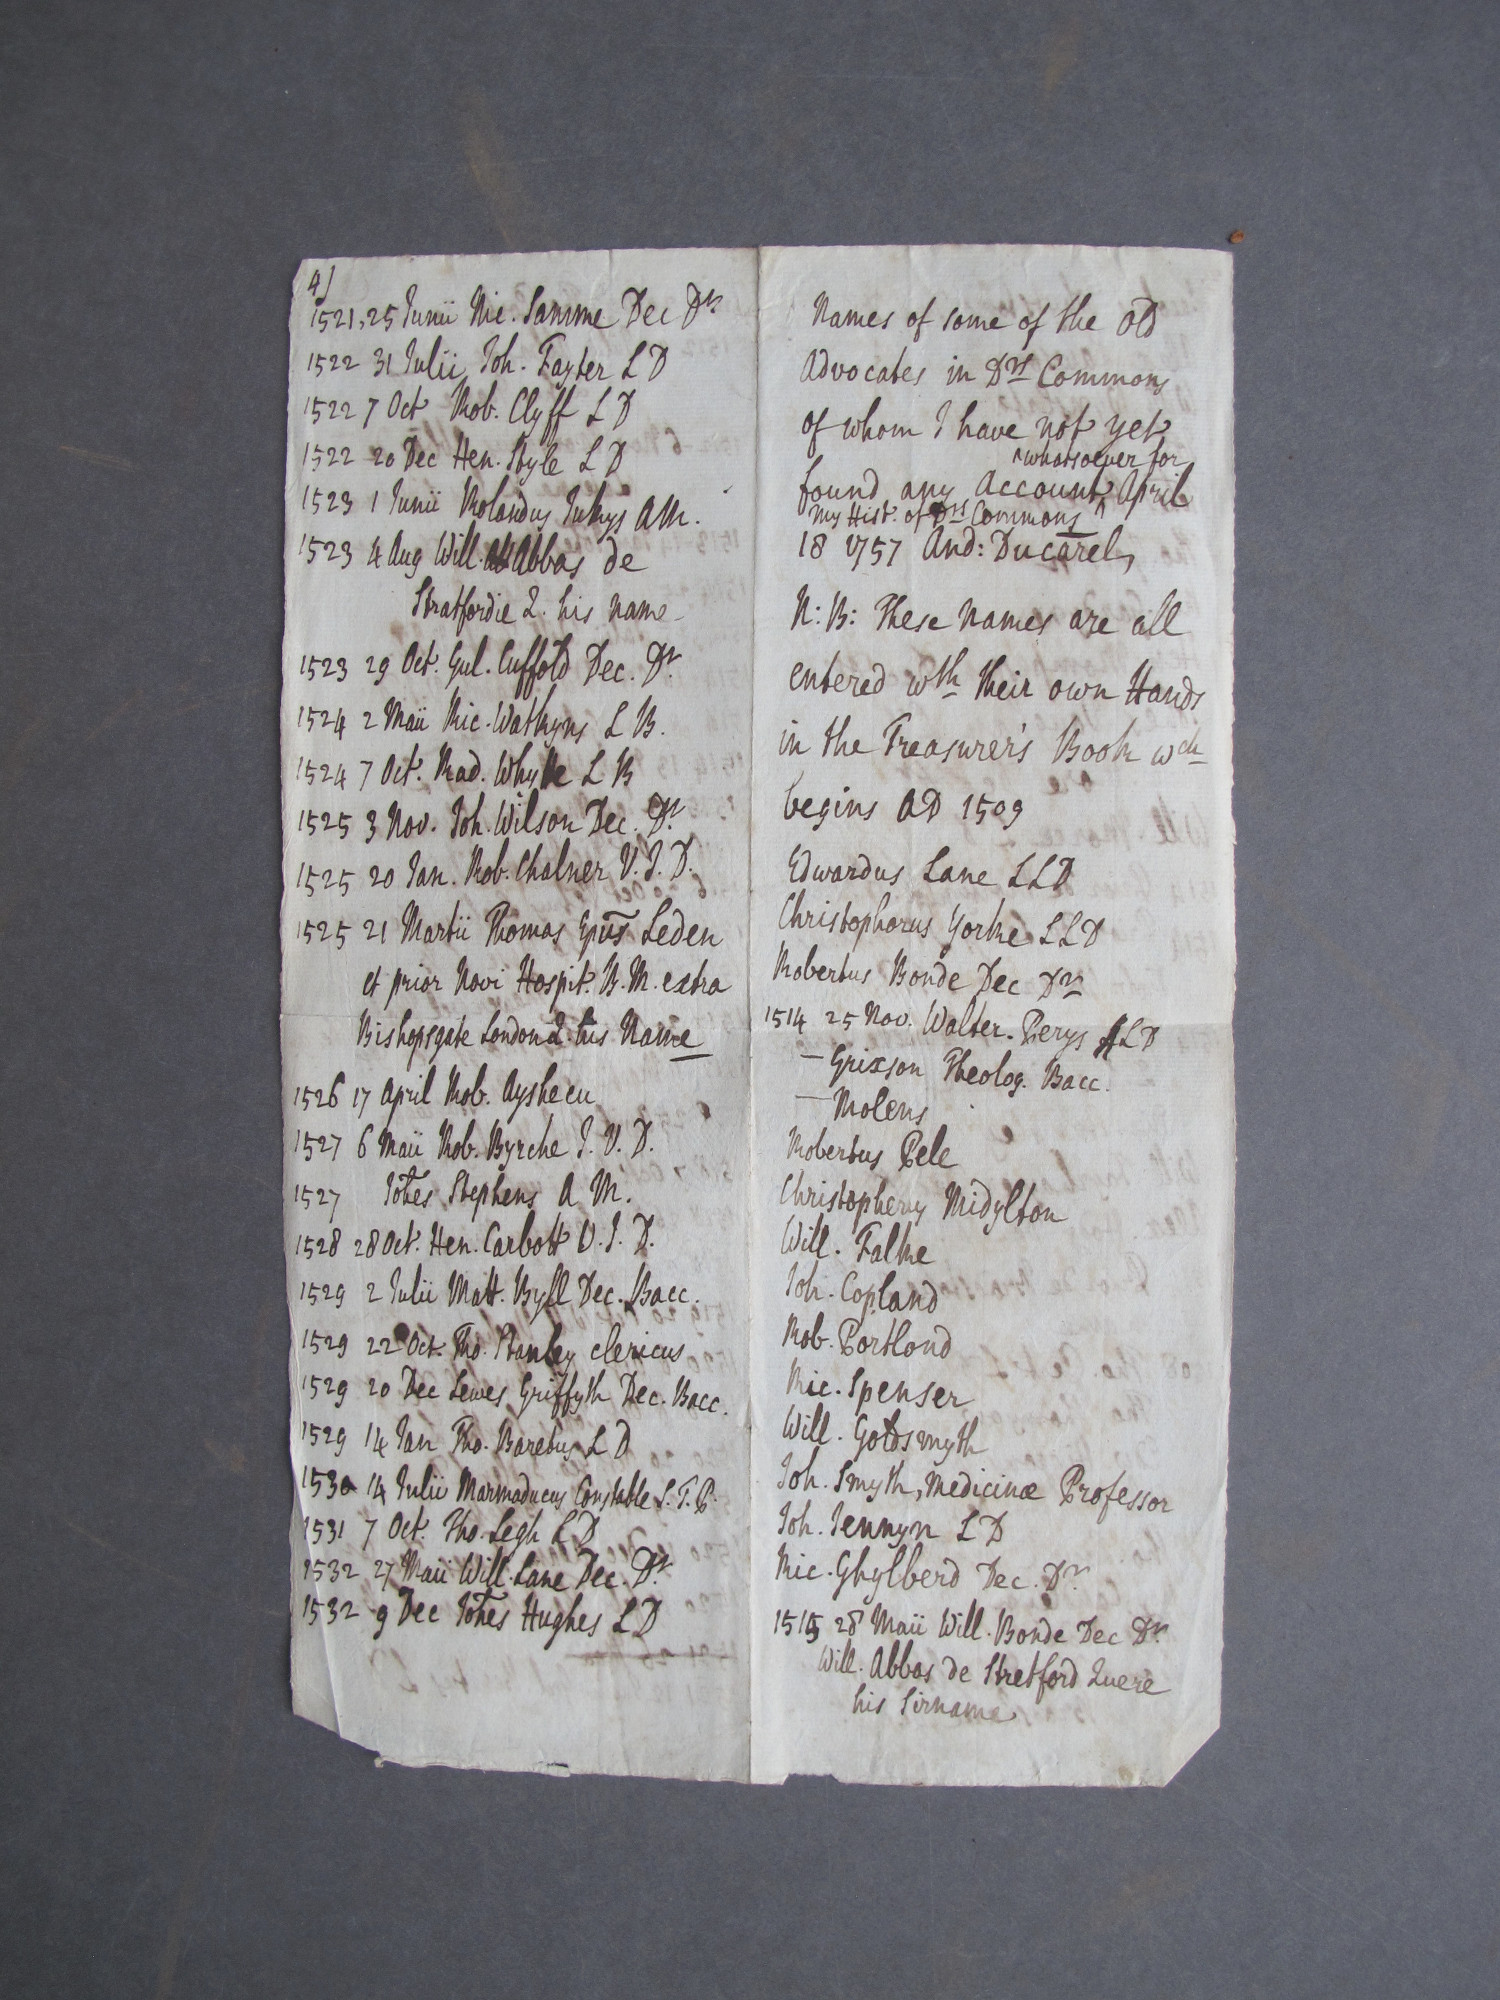 4]
1521, 25 Junii Ric. Samme Dec Dr.
1522 31 Julii Joh. Fayter L D
1522 7 Oct Rob. Clyff L D
1522 20 Dec Hen. Style L D
1523 1 Junii Rolandus A M.
1523 4 Aug Will. Abbas de
Stratfordie Q. his name
1523 29 Oct. Gul. Cuffold Dec. Dr.
1524 2 Maii Ric. Wathyns L B.
1524 7 Oct. Rad. Whyte L B
1525 3 Nov. Joh. Wilson Dec. Dr.
1525 20 Jan. Rob. Chalner V. J. D.
1525 21 Martii Thomas Epus Leden
et prior Novi Hospit. B. M. extra
Bishopsgate London Q. his Name
1526 17 April Rob.
1527 6 Maii Rob. Byrche J. V. D.
1527 Johes Stephens A M.
1528 28 Oct. Hen. Carbott V. J. D.
1529 2 Julii Matt. Byll Dec. Bacc.
1529 22 Oct. Tho. Stanley clericus
1529 20 Dec Lewes Griffyth Dec. Bacc.
1529 14 Jan Tho. Baretus L D
1530 14 Julii Marmaducus Constable S. T. P.
1531 7 Oct. Tho. Legh L D
1532 27 Maii Will. Lane Dec. Dr.
1532 9 Dec Johes Hughes L D
Names of some of the old
Advocates in Drs Commons
of whom I have not yet
^whatsoever for
found any Account ^ April
my Hist. of Drs Commons
18 1757 And: Ducarel,
N: B: These Names are all
entered wth their own Hands
in the Treasurer's Book wch
begins AD 1509
Edwardus Lane LLD
Christophorus Yorke LLD
Robertus Bonde Dec Dr
1514 25 Nov. Walter. Perys LD
— Grixson Theolog. Bacc.
— Molens
Robertus Pele
Christopherus Midylton
Will. Falke
Joh. Copland
Rob. Portlond
Ric. Spenser
Will. Goldsmyth
Joh. Smyth, Medicinæ Professor
Joh. Jennyn L D
Ric. Ghylberd Dec. Dr.
1515 28 Maii Will. Bonde Dec Dr.
Will. Abbas de Stretford Quere
his Sirname